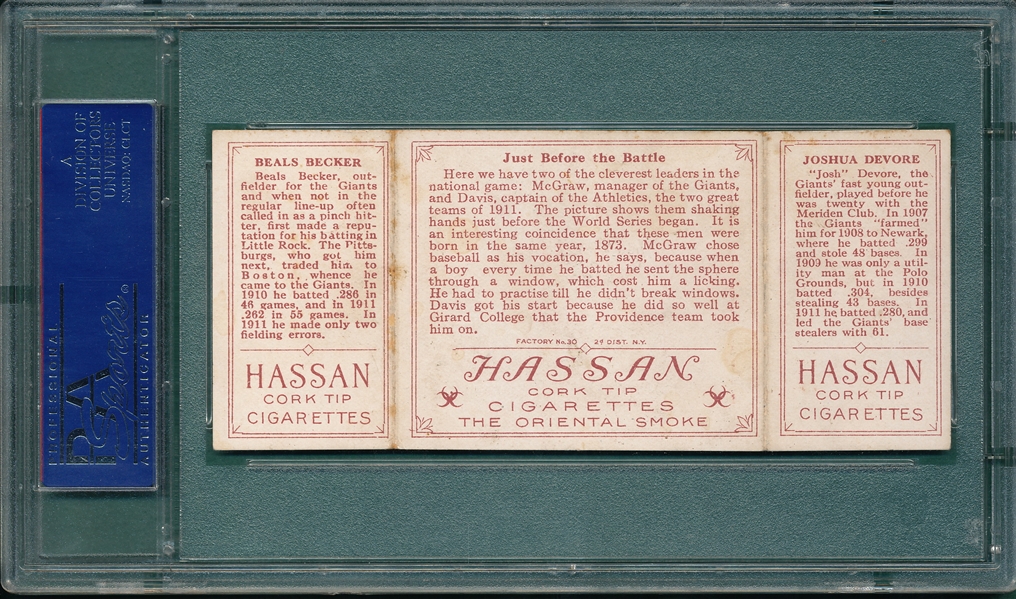 A
DIVISION OF
COLLECTORS
UNIVERSE
NASDAQ: CLCT
PROFESSIONAL
PSA
Sports
AUTHENTICATOR
BEALS BECKER
Beals Becker, out-
fielder for the Giants
and when not in the
regular line-up often
called in as a pinch hit-
ter, first made a repu-
tation for his batting in
Little Rock. The Pitts-
burgs, who got him
next, traded him to
Boston, whence he
came to the Giants. In
1910 he batted .286 in
46 games, and in 1911
.262 in 55 games. In
1911 he made only two
fielding errors.
HASSAN
CORK TIP
CIGARETTES
Just Before the Battle
Here we have two of the cleverest leaders in the
national game: McGraw, manager of the Giants,
and Davis, captain of the Athletics, the two great
teams of 1911. The picture shows them shaking
hands just before the World Series began. It is
an interesting coincidence that these men were
born in the same year, 1873. McGraw chose
baseball as his vocation, he says, because when
a boy every time he batted he sent the sphere
through a window, which cost him a licking.
He had to practise till he didn't break windows.
Davis got his start because he did so well at
Girard College that the Providence team took
him on.
FACTORY No.30 2d DIST. N.Y.
HASSAN
CORK TIP
CIGARETTES
THE ORIENTAL SMOKE
JOSHUA DEVORE
"Josh" Devore, the
Giants' fast young out-
fielder, played before he
was twenty with the
Meriden Club. In 1907
the Giants "farmed"
him for 1908 to Newark,
where he batted .299
and stole 48 bases. In
1909 he was only a util-
ity man at the Polo
Grounds, but in 1910
batted .304, besides
stealing 43 bases. In
1911 he batted .280, and
led the Giants' base
stealers with 61.
HASSAN
CORK TIP
CIGARETTES